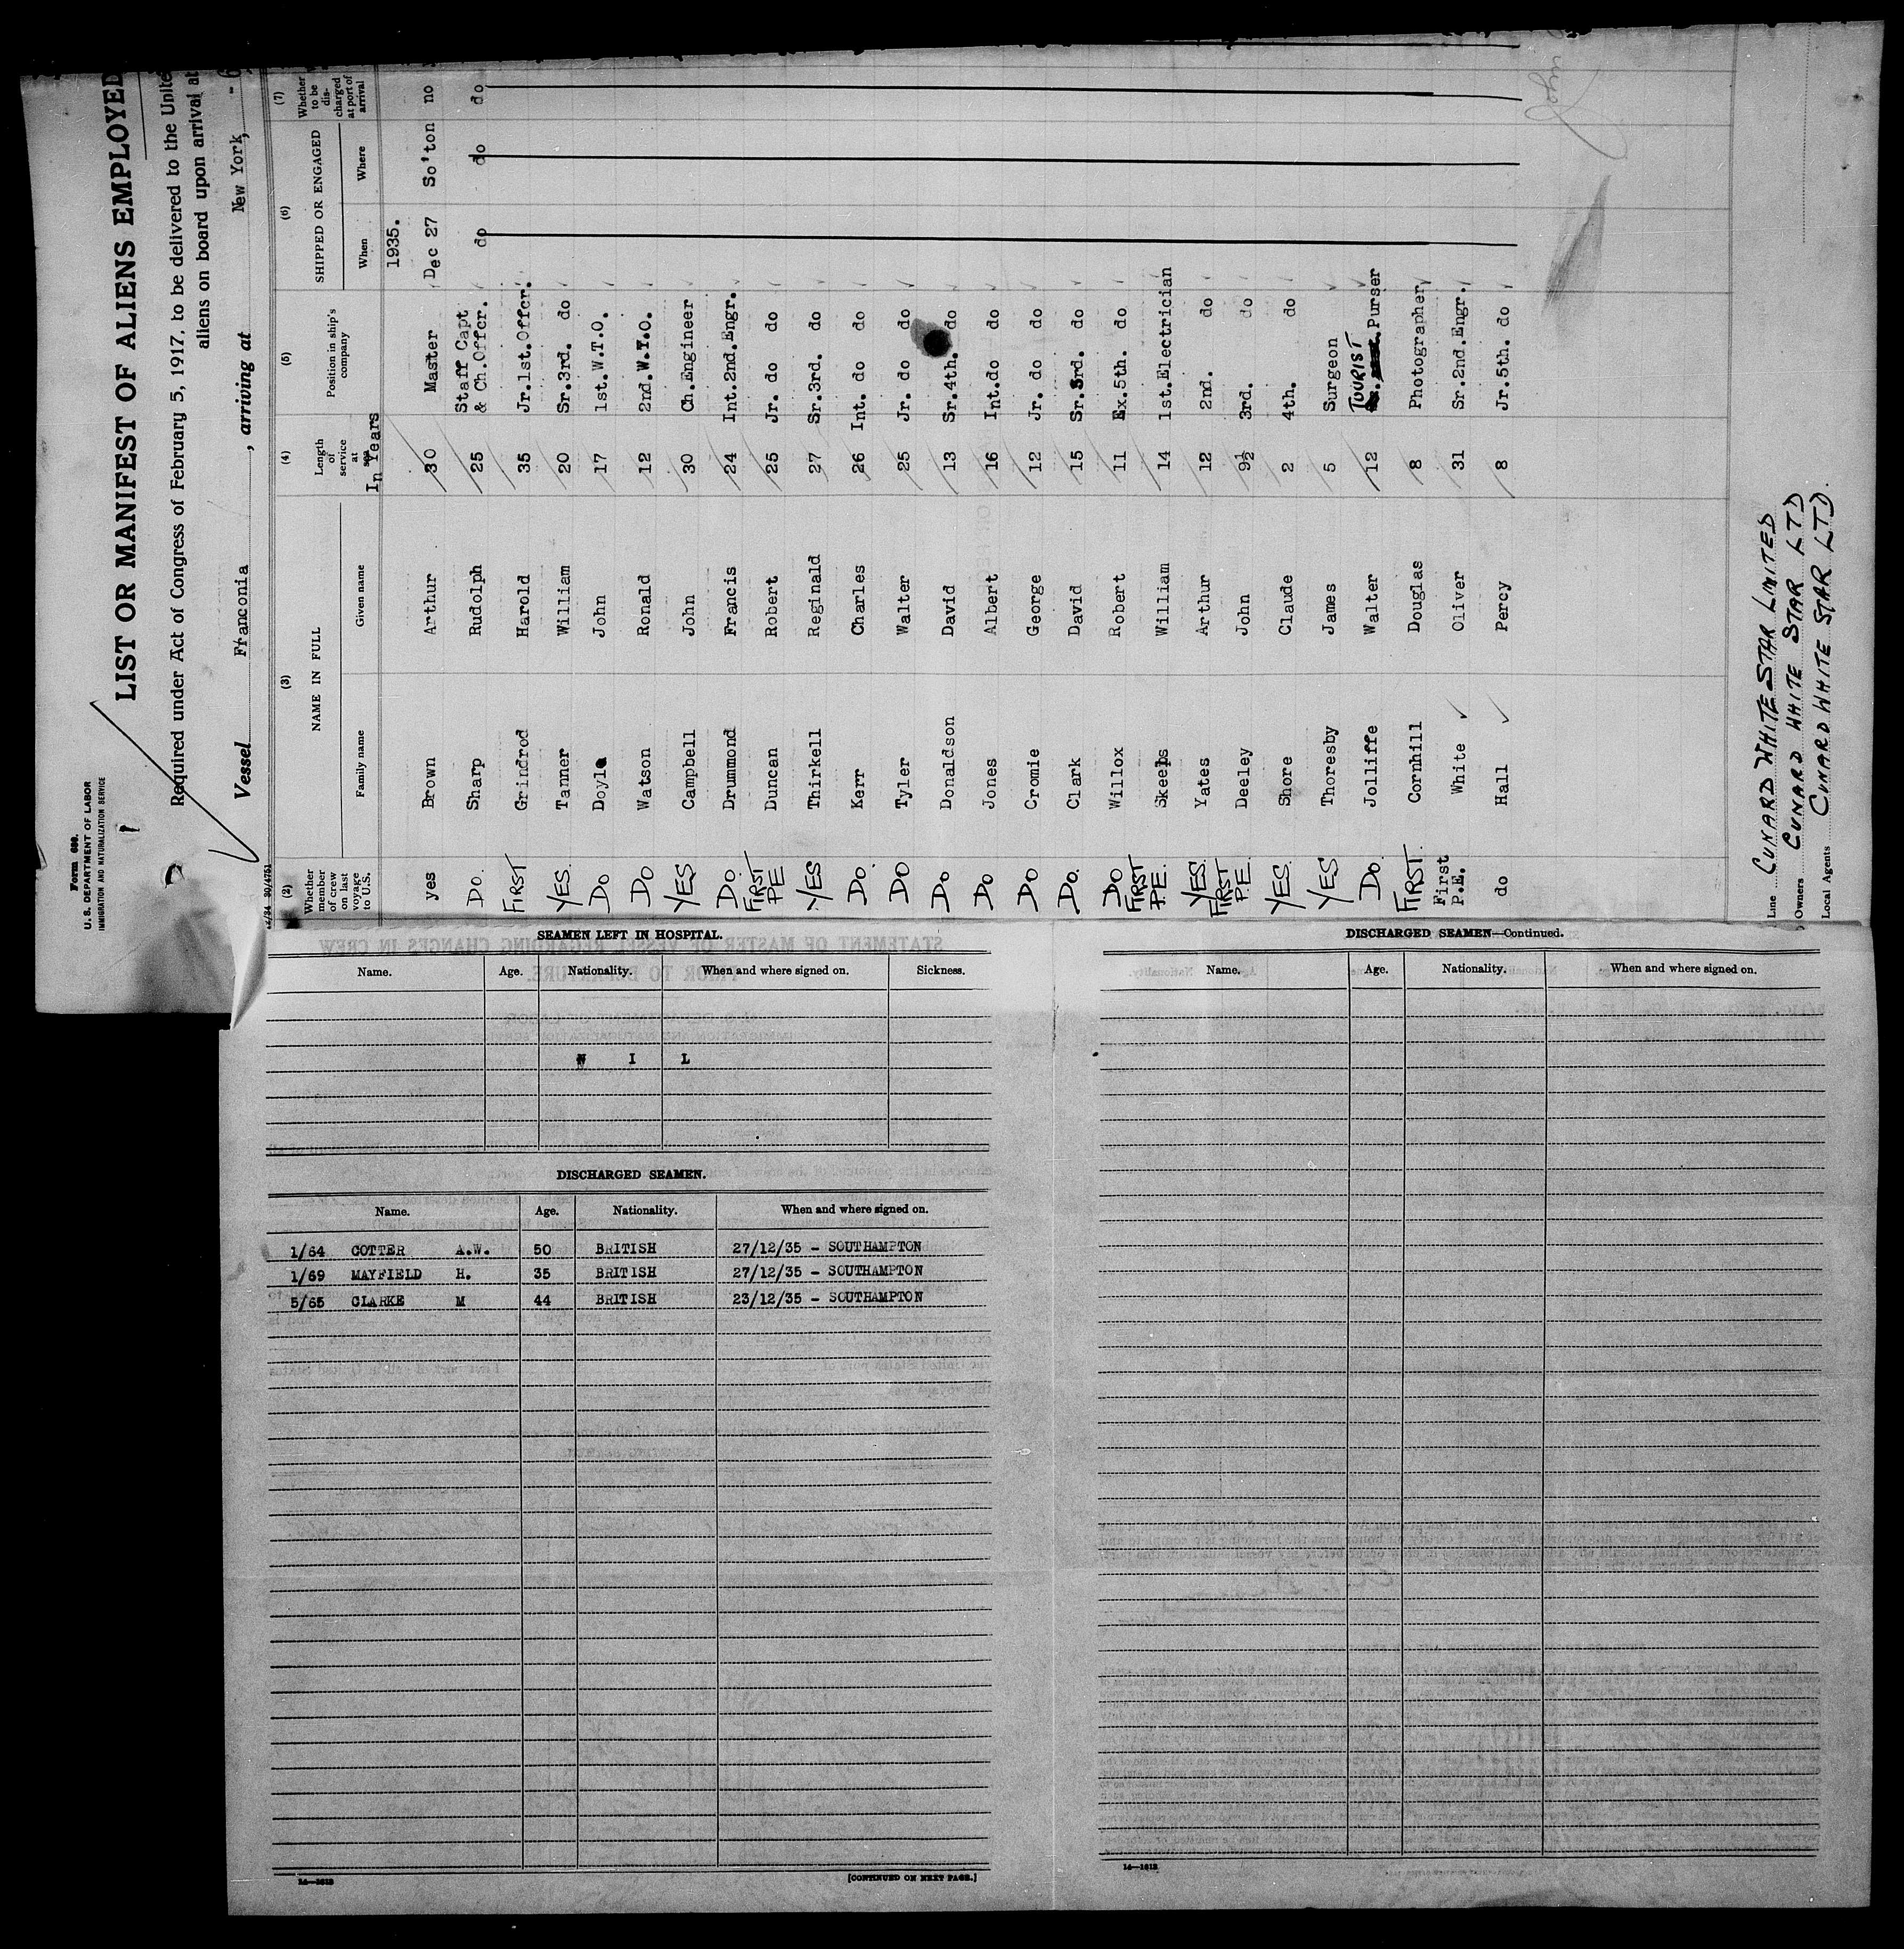 Form 680.
U. S. DEPARTMENT OF LABOR
IMMIGRATION AND NATURALIZATION SERVICE
LIST OR MANIFEST OF ALIENS EMPLOYED
Required under Act of Congress of February 5, 1917, to be delivered to the Unite
aliens on board upon arrival at
Vessel Franconia, arriving at New York, - 6
(2) (3) (4) (5) (6) (7)
Whether member of crew on last voyage to U.S. NAME IN FULL Family name Given name Length of service at sea In Years Position in ship's company SHIPPED OR ENGAGED When Where Whether to be discharged at port of arrival
1935.
yes Brown Arthur 30 Master Dec 27 So'ton no
DO. Sharp Rudolph 25 Staff Capt & Ch.Offcr. do do do
FIRST Grindrod Harold 35 Jr.1st.Offcr.
YES. Tanner William 20 Sr.3rd. do
DO Doyle John 17 1st.W.T.O.
DO Watson Ronald 12 2nd.W.T.O.
YES Campbell John 30 Ch.Engineer
DO. Drummond Francis 24 Int.2nd.Engr.
FIRST PE Duncan Robert 25 Jr. do do
YES Thirkell Reginald 27 Sr.3rd. do
DO. Kerr Charles 26 Int. do do
DO Tyler Walter 25 Jr. do do
DO Donaldson David 13 Sr.4th. do
DO Jones Albert 16 Int.do do
DO Cromie George 12 Jr. do do
DO. Clark David 15 Sr.3rd. do
DO Willox Robert 11 Ex.5th. do
FIRST P.E. Skeels William 14 1st.Electrician
YES. Yates Arthur 12 2nd. do
FIRST P.E. Deeley John 9½ 3rd. do
YES. Shore Claude 2 4th. do
YES Thoresby James 5 Surgeon
DO. Jolliffe Walter 12 TOURIST Purser
FIRST. Cornhill Douglas 8 Photographer
First P.E. White Oliver 31 Sr.2nd.Engr.
do Hall Percy 8 Jr.5th. do
John
Line CUNARD WHITE STAR LIMITED
Owners CUNARD WHITE STAR LTD
Local Agents CUNARD WHITE STAR LTD.
SEAMEN LEFT IN HOSPITAL.
Name. Age. Nationality. When and where signed on. Sickness.
N I L
DISCHARGED SEAMEN.
Name. Age. Nationality. When and where signed on.
1/64 COTTER A.W. 50 BRITISH 27/12/35 - SOUTHAMPTON
1/69 MAYFIELD H. 35 BRITISH 27/12/35 - SOUTHAMPTON
5/65 CLARKE M 44 BRITISH 23/12/35 - SOUTHAMPTON
14—1613
[CONTINUED ON NEXT PAGE.]
DISCHARGED SEAMEN—Continued.
Name. Age. Nationality. When and where signed on.
14—1613